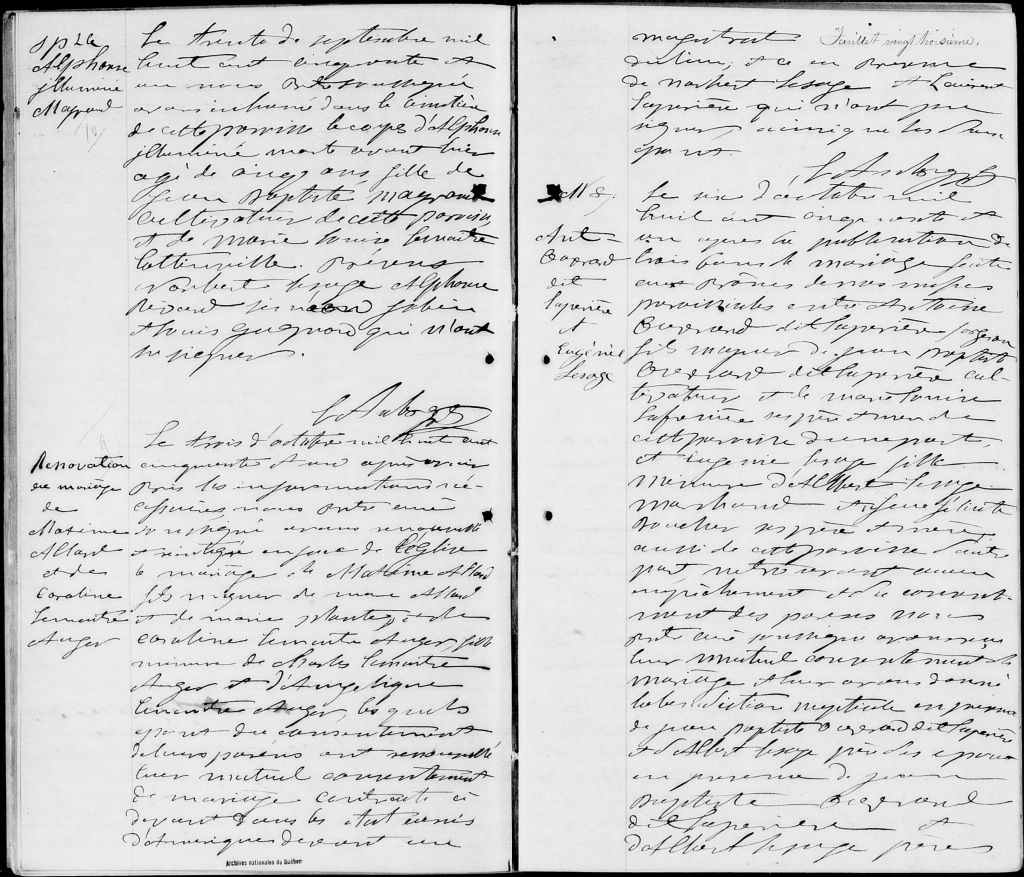 Sp 26
Alphonse
illuminé
Magnand
Le trente de septembre mil
huit cent cinquante et
un nous Ptre soussigné
avons inhumé dans le cimetière
de cette paroisse le corps d'Alphonse
illuminé mort avant hier
agé de onze ans fille de
Jean Baptiste
cultivateur de cette paroisse
et de marie Louise Lemaitre
Lottinville. Présens
Norbert Lesage Alphonse
qui n'ont
su signer.
Renovation
de mariage
de
Maxime
Allard
et de
Caroline
Lemaitre
Auger
Le trois d'octobre mil huit cent
cinquante et un après avoir
pris les informations né-
cessaires nous ptre curé
soussigné avons renouvellé
et en face de l'église
le mariage de Maxime Allard
fils mineur de marc Allard
et de marie plante, et de
Caroline Lemaitre Auger, fille
mineure de Charles Lemaitre
Auger et d'Angelique
Lemaitre Auger, les quels
ayant du consentement
de leurs parens ont renouvellé
leur mutuel consentement
de mariage contracté ci
devant dans les états unis
d'amérique devant un
Archives nationales du Québec
Feuillet vingt troisième.
magistrat
du lieu, et ce en présence
de Norbert Lesage et Laurent
Laperière qui n'ont pu
signer ainsi que les
M 8
Ant-
dit
Laperière
&
Eugénie
Lesage
Le six d'octobre mil
huit cent cinquante et
un après la publication de
trois bans de mariage faite
aux prônes de nos messes
paroissiales entre Antoine
dit Laperière forgeron
fils majeur de jean baptiste
dit Laperière cul-
tivateur et de marie Louise
ses père et mère de
cette paroisse d'une part,
et Eugénie Lesage fille
mineure d'Albert Lesage
marchand et
Boucher ses père et mère
aussi de cette paroisse d'autre
part, aucun
empêchement et du consente-
ment des parens nous
ptre curé soussigné avons reçu
leur mutuel consentement de
mariage et leur avons donné
la bénédiction nuptiale en présence
de jean baptiste dit Laperière
et d'Albert Lesage pères des époux
en présence de jean
Baptiste
dit Laperière et
d'Albert Lesage pères